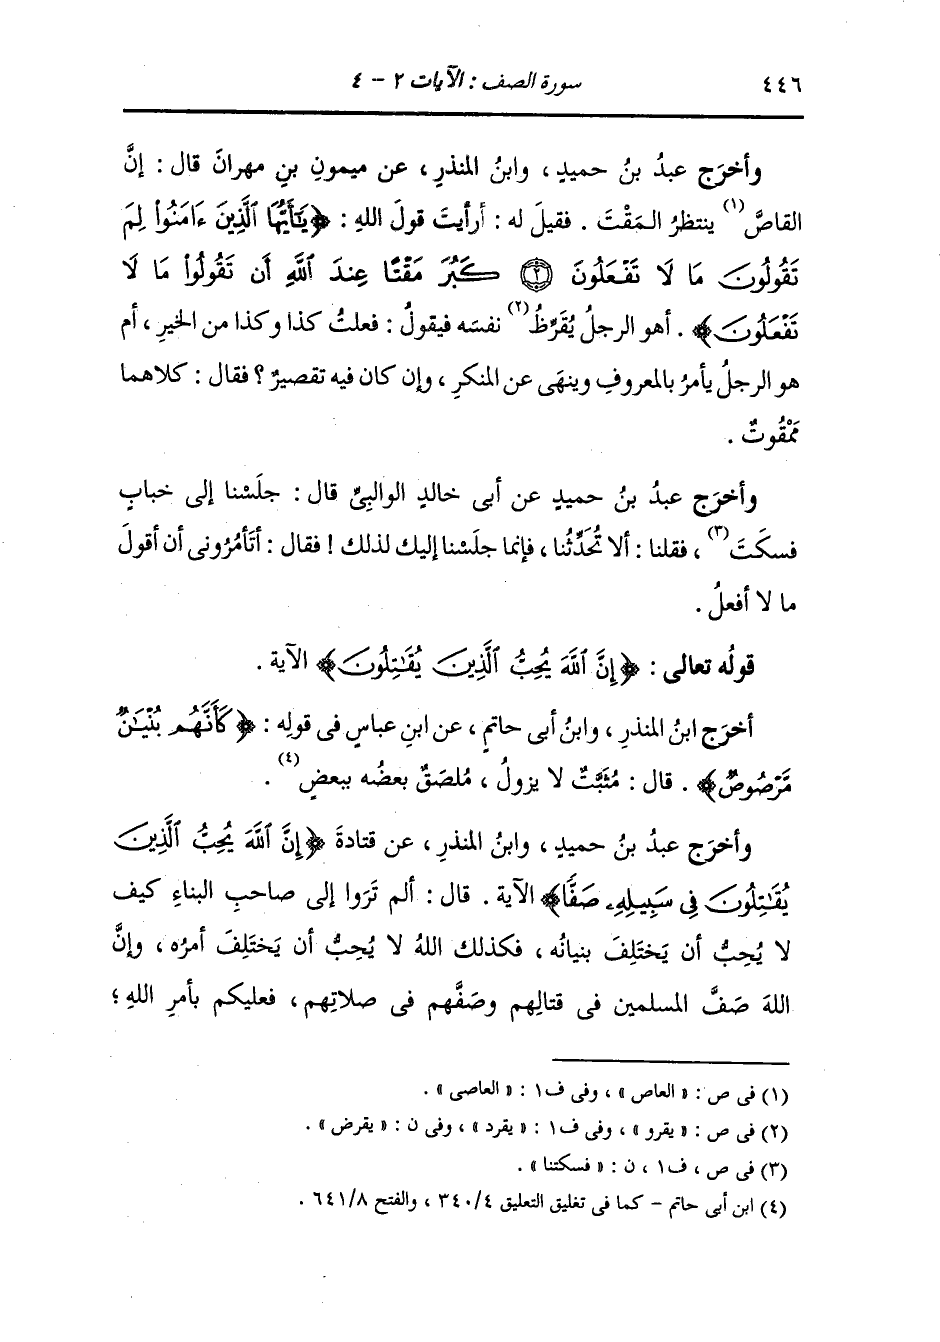 ٤٤٦ سورة الصف : الآيات ٢ - ٤
وأخرَج عبدُ بنُ حميدٍ ، وابنُ المنذرِ ، عن ميمونِ بنِ مهرانَ قال : إنَّ
القاصَّ(١) ينتظرُ المَقْتَ . فقيلَ له : أرأيت قولَ اللهِ : ﴿يَٰٓأَيُّهَا ٱلَّذِينَ ءَامَنُواْ لِمَ
تَقُولُونَ مَا لَا تَفْعَلُونَ ﴿٢﴾ كَبُرَ مَقْتًا عِندَ ٱللَّهِ أَن تَقُولُواْ مَا لَا
تَفْعَلُونَ﴾ . أهو الرجلُ يُقَرِّظُ(٢) نفسَه فيقولُ : فعلتُ كذا وكذا من الخيرِ ، أم
هو الرجلُ يأمرُ بالمعروفِ وينهَى عن المنكرِ ، وإن كان فيه تقصيرٌ ؟ فقال : كلاهما
مَمْقُوتٌ .
وأخرَج عبدُ بنُ حميدٍ عن أبى خالدٍ الوالبىِّ قال : جلَسْنا إلى خبابٍ
فسكَتَ(٣) ، فقلنا : ألا تُحَدِّثُنا ، فإنما جلَسْنا إليك لذلك ! فقال : أتَأمُرُونى أن أقولَ
ما لا أفعلُ .
قولُه تعالى : ﴿إِنَّ ٱللَّهَ يُحِبُّ ٱلَّذِينَ يُقَٰتِلُونَ﴾ الآية .
أخرَج ابنُ المنذرِ ، وابنُ أبى حاتمٍ ، عن ابنِ عباسٍ فى قولِه : ﴿كَأَنَّهُم بُنْيَٰنٌ
مَّرْصُوصٌ﴾ . قال : مُثَبَّتٌ لا يزولُ ، مُلصَقٌ بعضُه ببعضٍ(٤) .
وأخرَج عبدُ بنُ حميدٍ ، وابنُ المنذرِ ، عن قتادةَ ﴿إِنَّ ٱللَّهَ يُحِبُّ ٱلَّذِينَ
يُقَٰتِلُونَ فِى سَبِيلِهِۦ صَفًّا﴾ الآية . قال : ألم تَرَوا إلى صاحبِ البناءِ كيف
لا يُحِبُّ أن يَختَلِفَ بنيانُه ، فكذلك اللهُ لا يُحِبُّ أن يَختَلِفَ أمرُه ، وإنَّ
اللهَ صَفَّ المسلمين فى قتالِهم وصَفَّهم فى صلاتِهم ، فعليكم بأمرِ اللهِ ؛
(١) فى ص : « العاص » ، وفى ف١ : « العاصى » .
(٢) فى ص : « يقرو » ، وفى ف١ : « يقرد » ، وفى ن : « يقرض » .
(٣) فى ص ، ف١ ، ن : « فسكتنا » .
(٤) ابن أبى حاتم - كما فى تغليق التعليق ٣٤٠/٤ ، والفتح ٦٤١/٨ .